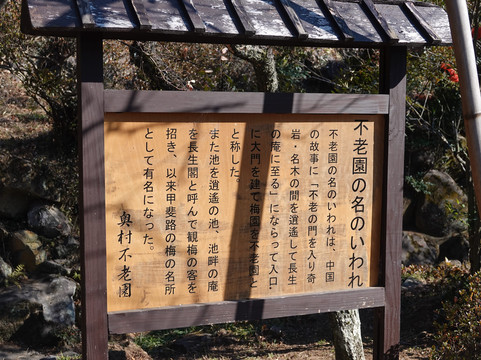 不老園の名のいわれ
不老園の名のいわれは、中国
の故事に「不老の門を入り奇
岩・名木の間を逍遥して長生
の庵に至る」にならって入口
に大門を建て梅園を不老園と
と称した
また池を逍遥の池、池畔の庵
を長生閣と呼んで観梅の客を
招き、以来甲斐路の梅の名所
として有名になった。
奥村不老園